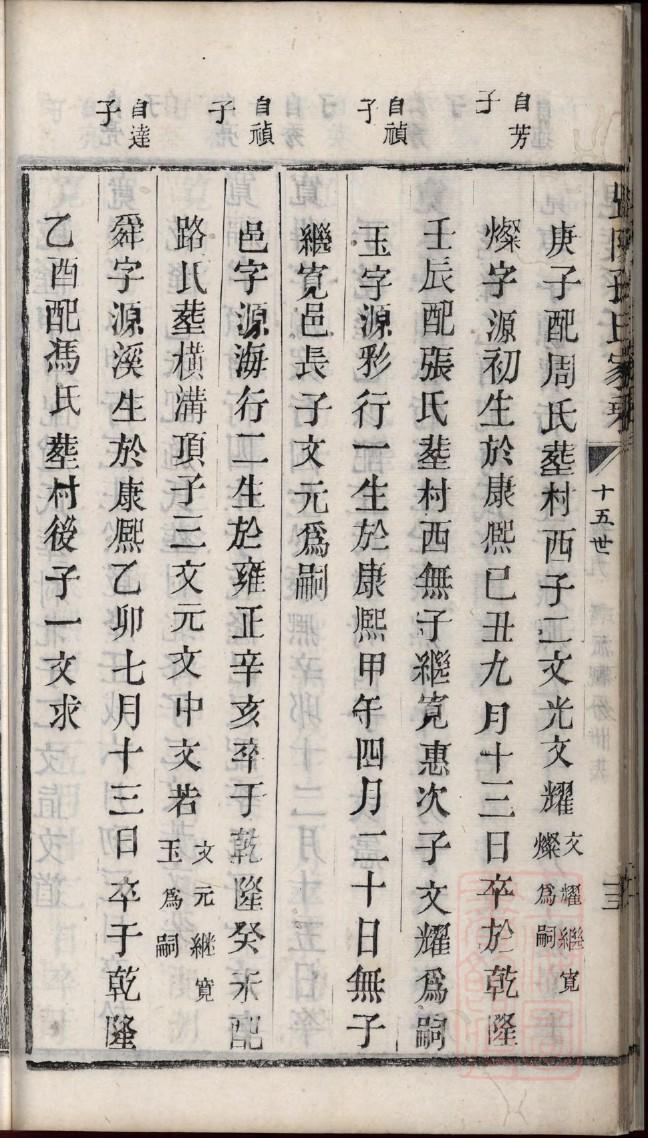 氏家乘
十五世
庚子配周氏塟村西子二文光文耀文耀繼寬燦為嗣
自芳子
燦字源初生於康熙己丑九月十三日卒於乾隆
壬辰配張氏塟村西無子繼寬惠次子文耀為嗣
自禎子
玉字源彩行一生於康熙甲午四月二十日無子
繼寬邑長子文元為嗣
自禎子
邑字源海行二生於雍正辛亥卒于乾隆癸未配
路氏塟橫溝頂子三文元文中文若文元継寬玉為嗣
自達子
舜字源溪生於康熙乙卯七月十三日卒于乾隆
乙酉配馮氏塟村後子一文求